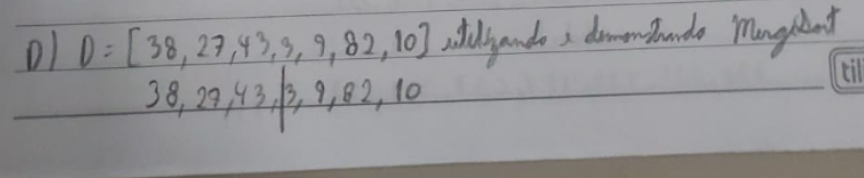 D) D = [38, 27, 43, 3, 9, 82, 10] utilizando e demonstrando MergeSort
38, 27, 43, | 3, 9, 82, 10
til